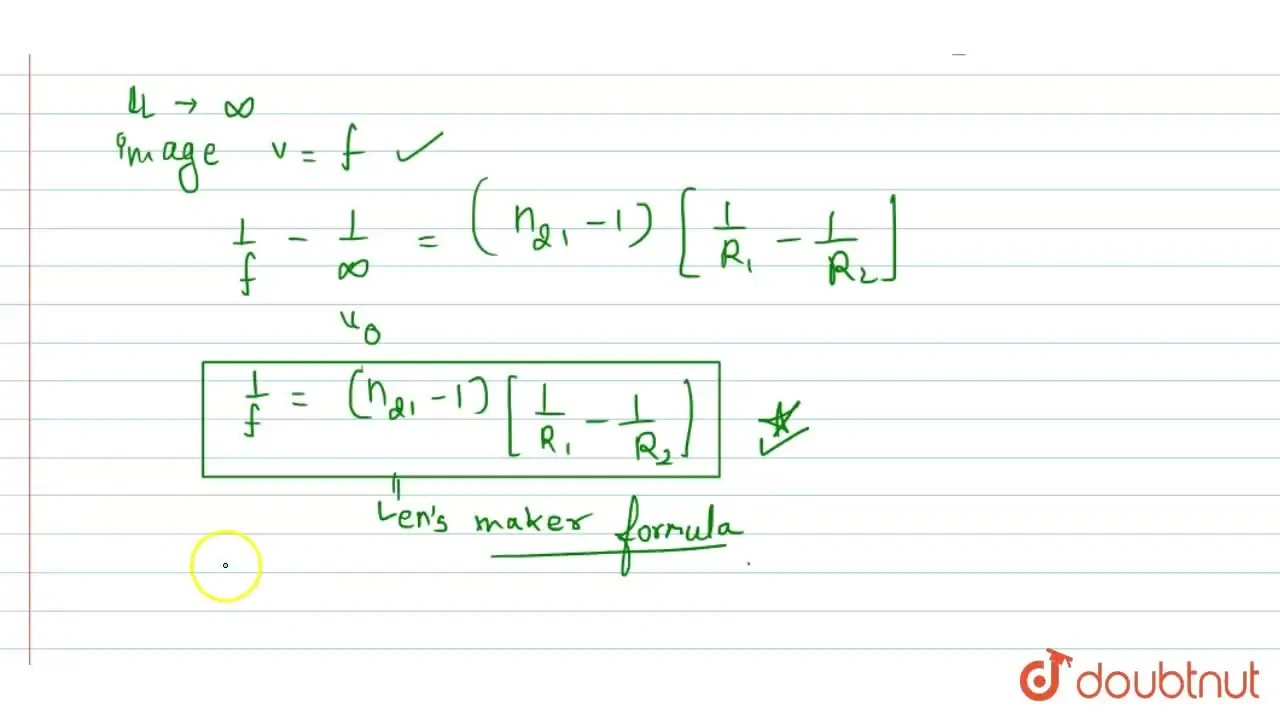 u → ∞
image v = f ✓
1/f - 1/∞ = (n₂₁ - 1) [1/R₁ - 1/R₂]
1/f = (n₂₁ - 1) [1/R₁ - 1/R₂]
Len's maker formula
doubtnut